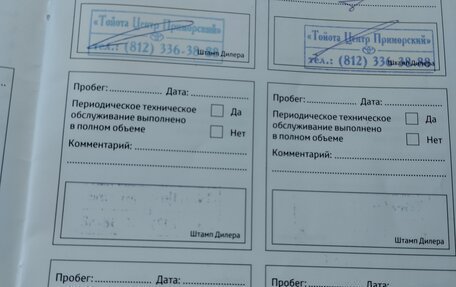 «Тойота Центр Приморский»
тел.: (812) 336-38-88
Штамп Дилера
«Тойота Центр Приморский»
тел.: (812) 336-38-88
Штамп Дилера
Пробег:.................... Дата:............
Периодическое техническое
обслуживание выполнено
в полном объеме
Да
Нет
Комментарий:..............................
Штамп Дилера
Пробег:.................... Дата:............
Периодическое техническое
обслуживание выполнено
в полном объеме
Да
Нет
Комментарий:..............................
Штамп Дилера
Пробег:.................... Дата:............
Пробег:.................... Дата:............